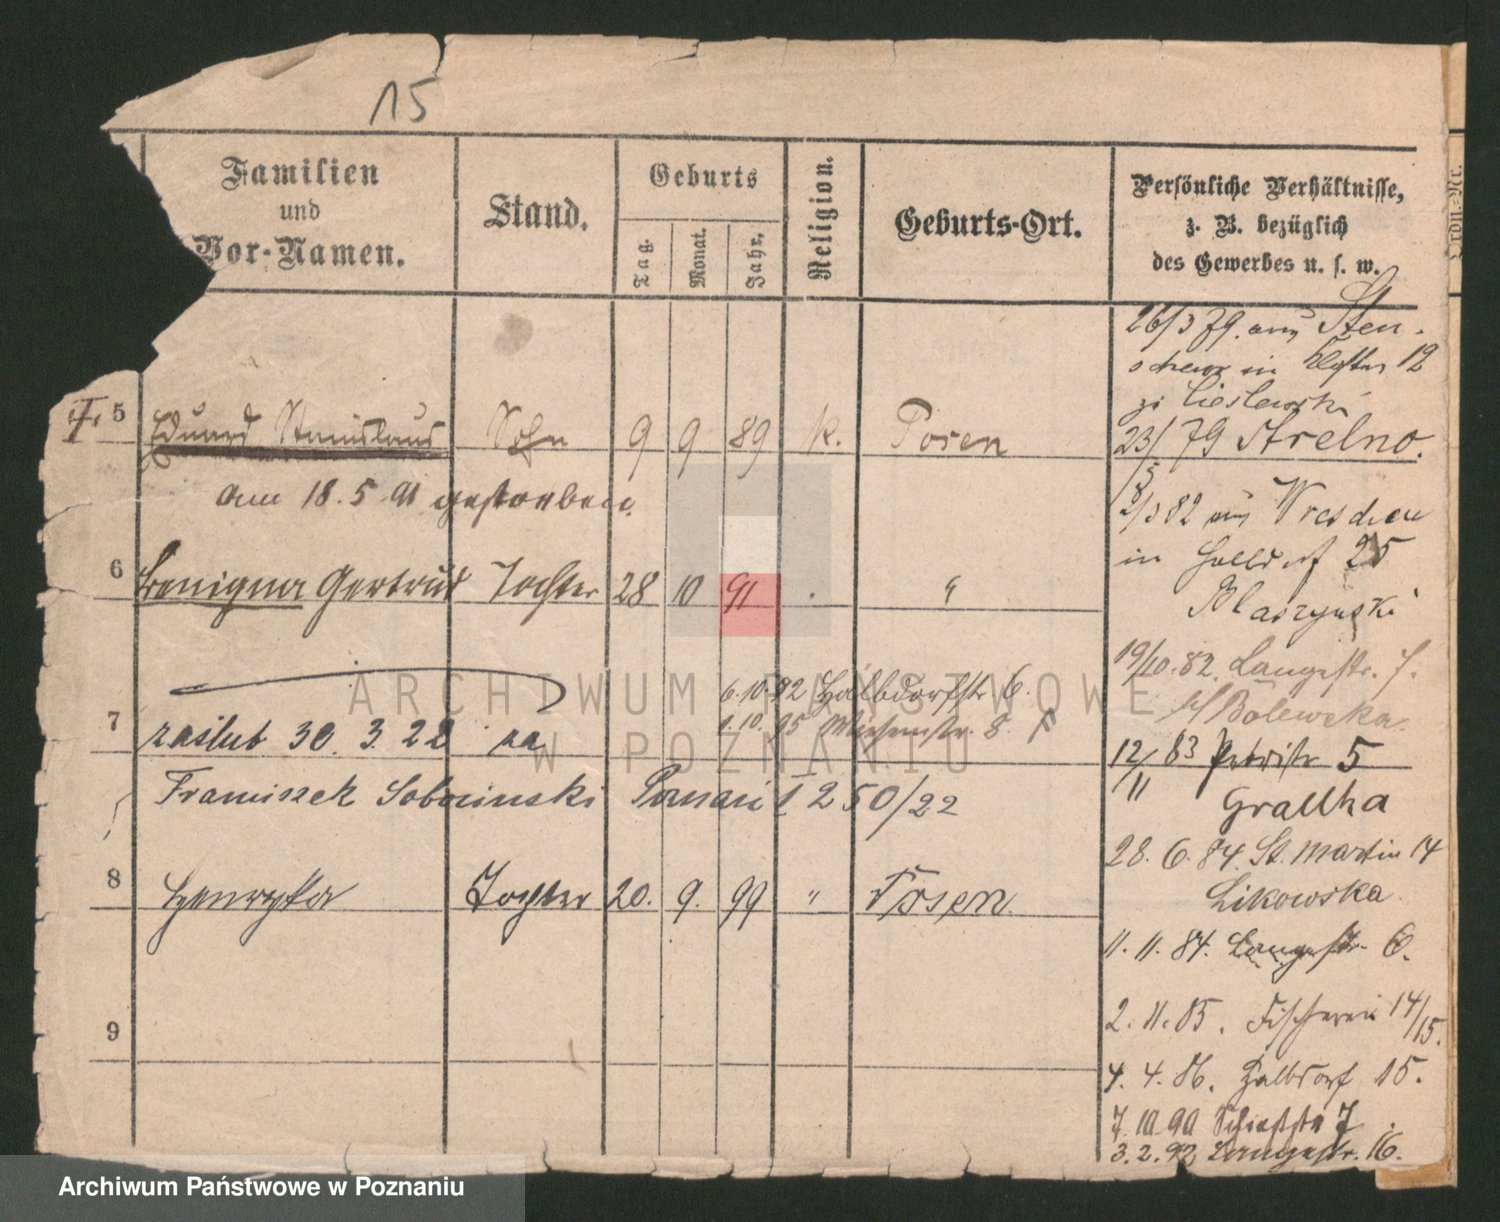 15
Familien
und
Vor-Namen.
Stand.
Geburts
Tag.
Monat.
Jahr.
Religion.
Geburts-Ort.
Persönliche Verhältnisse,
z. B. bezüglich
des Gewerbes u. s. w.
Ordn.-Nr.
5 Eduard Stanislaus Sohn 9 9 89 k. Posen
am 18. 5. 91 gestorben.
6 Benigna Gertrud Tochter 28 10 91 "
6.10.92 Halbdorfstr 6.
1.10.95 Wiesenstr. 8.
7 zaślub 30. 3. 22 za
Franciszek Sobocinski Poznań I 250/22
8 Henryka Tochter 20. 9. 99 " Posen
9
26/3 79. aus Sten-
schewo in 12
zu Cieslewski
23/5 79 Strelno.
2/3 82 aus Wreschen
in Halbdorf 25
Blaszynski
19/10. 82. Langestr. 7.
b/ Bolewska
12/11 83 Petristr 5
Grallha
28. 6. 84. St. Martin 14
Likowska
11. 11. 84. Langestr. 6.
2. 11. 85. Fischerei 14/15.
4. 4. 86. Halbdorf 15.
7. 10 90 Schießstr 7
3. 2. 92 Langestr. 16.
ARCHIWUM PAŃSTWOWE
W POZNANIU
Archiwum Państwowe w Poznaniu